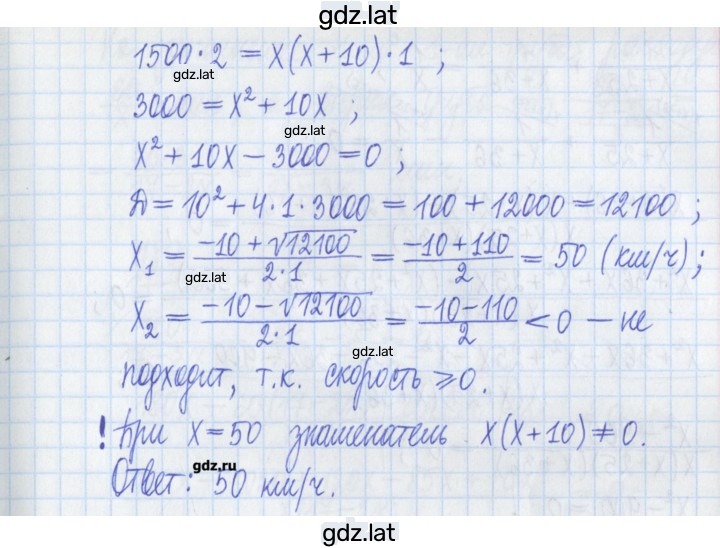 gdz.lat
1500·2 = x(x+10)·1 ;
gdz.lat
3000 = x²+10x ;
gdz.lat
x²+10x−3000=0 ;
D=10²+4·1·3000=100+12000=12100 ;
x₁ = (−10+√12100)/(2·1) = (−10+110)/2 = 50 (км/ч) ;
x₂ = (−10−√12100)/(2·1) = (−10−110)/2 < 0 − не
подходит, т.к. скорость ⩾0.
! При x=50 знаменатель x(x+10)≠0.
gdz.ru
Ответ: 50 км/ч.
gdz.lat